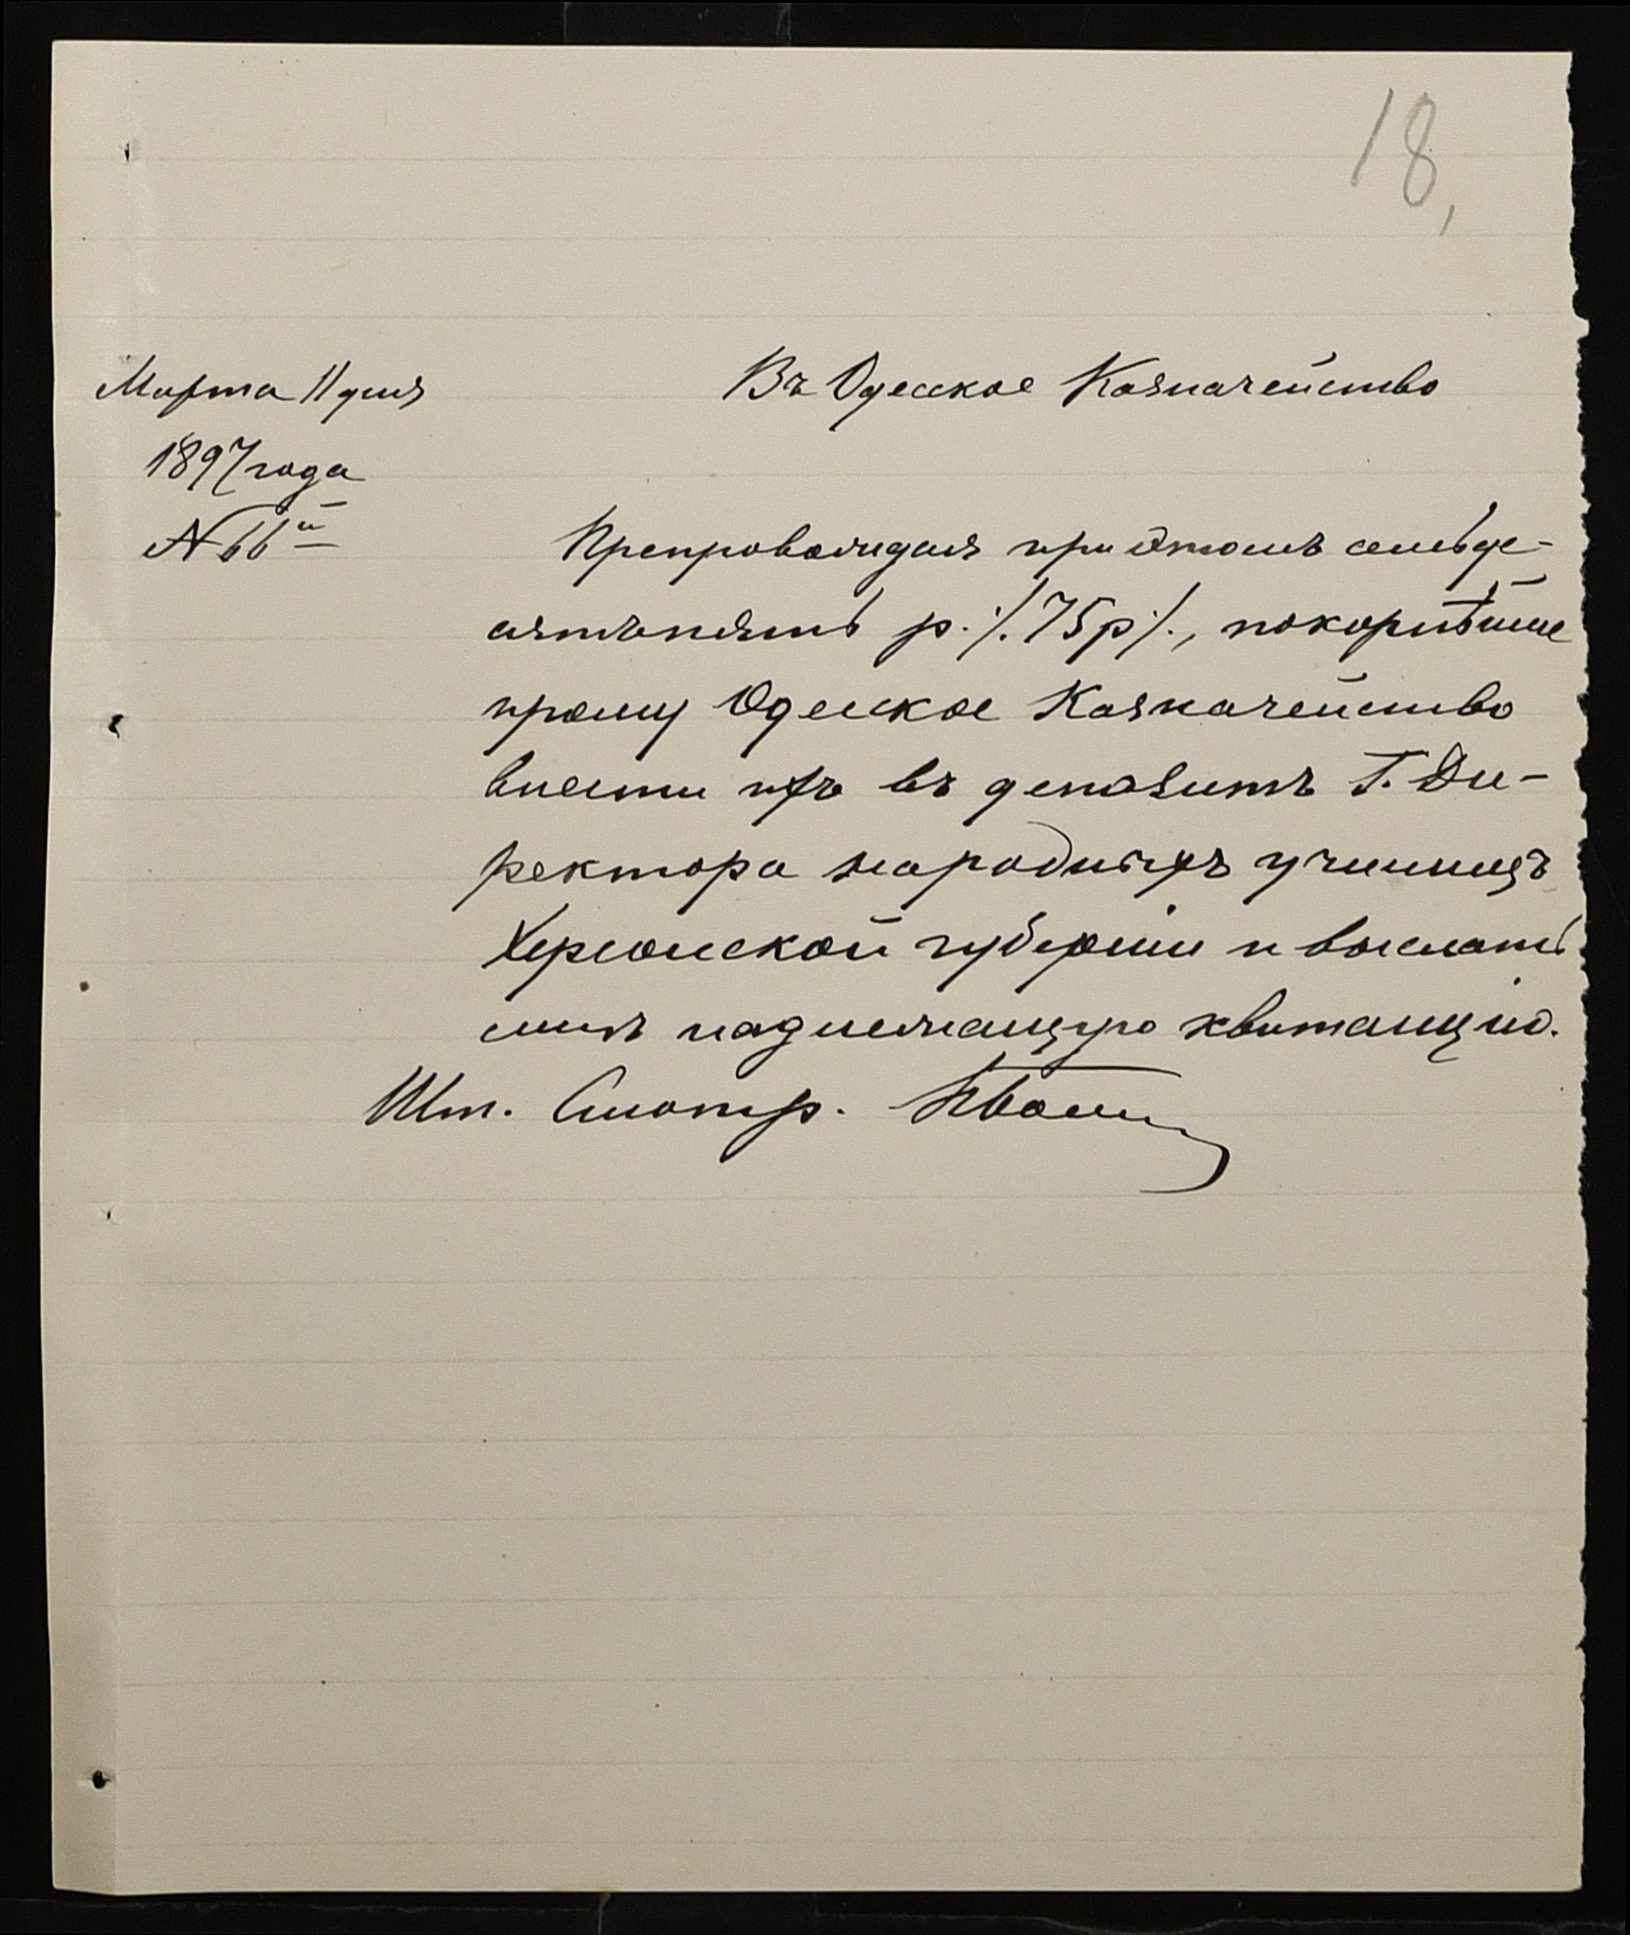 18,
Марта 11 дня
1897 года
№ 66й
Въ Одесское Казначейство
Препровождая при этомъ семьде-
сятъпять р. /. 75 р /., покорнѣйше
прошу Одесское Казначейство
внести ихъ въ депозитъ Г. Ди-
ректора народныхъ училищъ
Херсонской губерніи и выслать
мнѣ надлежащую квитанцію.
Шт. Смотр.